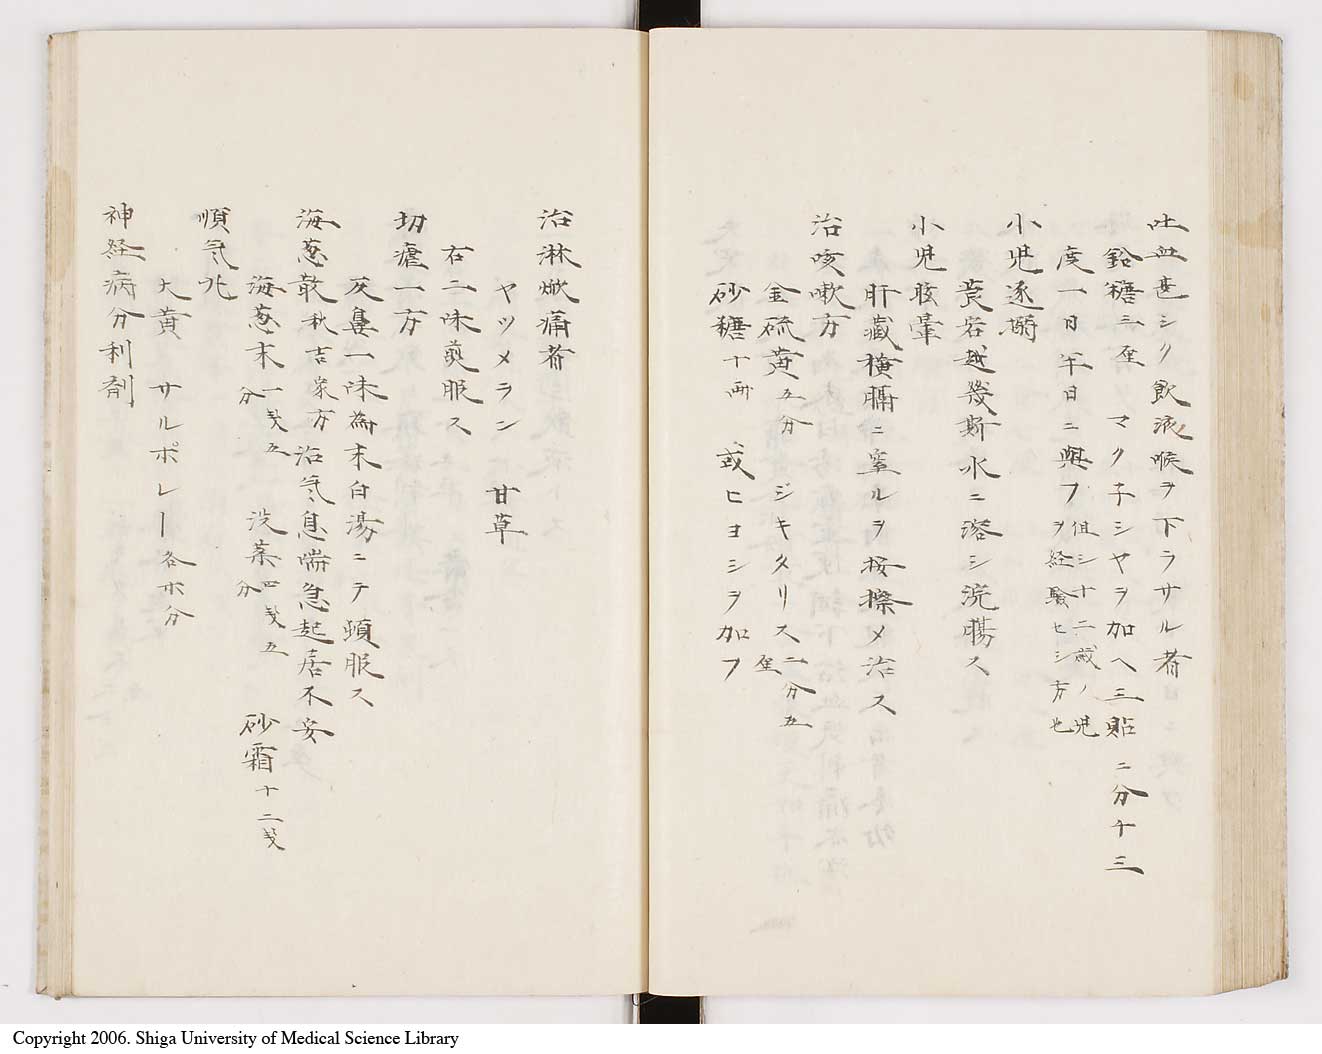 吐血甚シク飲液喉ヲ下ラサル者
鉛糖三厘 マク子シヤヲ加ヘ三貼ニ分チ三
度一日半日ニ與フ 但シ十二歳ノ児ヲ経験セシ方也
小児逐搦
莨宕越幾斯水ニ溶シ浣腸ス
小児眩暈
肝蔵横膈ニ窒ルヲ按擦メ治ス
治咳嗽方
金硫黄五分 ジキタリス二分五厘
砂糖十两 或ヒヨシヲ加フ
治淋疾痛者
ヤツメラン 甘草
右二味煎服ス
切瘧一方
反鼻一味為末白湯ニテ頓服ス
海葱散秋吉家方治気息喘急起居不安
海葱末一戔五分 没薬四戔五分 砂霜十二戔
順気兆
大黄 サルポレー各ホ分
神経病分利剤
Copyright 2006. Shiga University of Medical Science Library